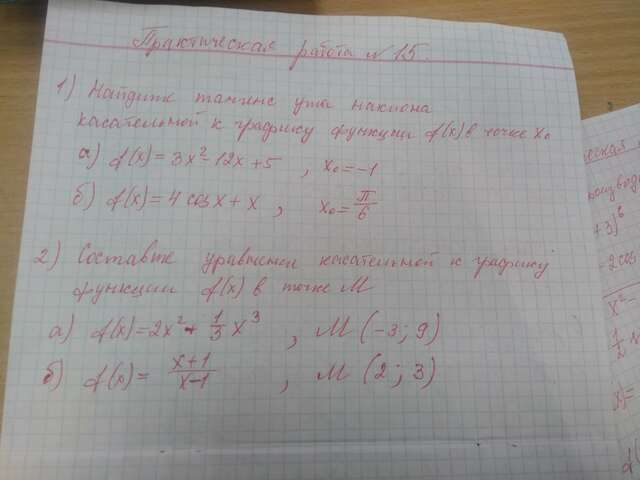 Практическая работа №15.
1) Найдите тангенс угла наклона
касательной к графику функции f(x) в точке x₀
а) f(x) = 3x² - 12x + 5 , x₀ = -1
б) f(x) = 4 cos x + x , x₀ = π/6
2) Составьте уравнения касательной к графику
функции f(x) в точке M
а) f(x) = 2x² + 1/3 x³ , M (-3; 9)
б) f(x) = x+1/x-1 , M (2; 3)
+3)⁶
-2cos
x² -
1/2